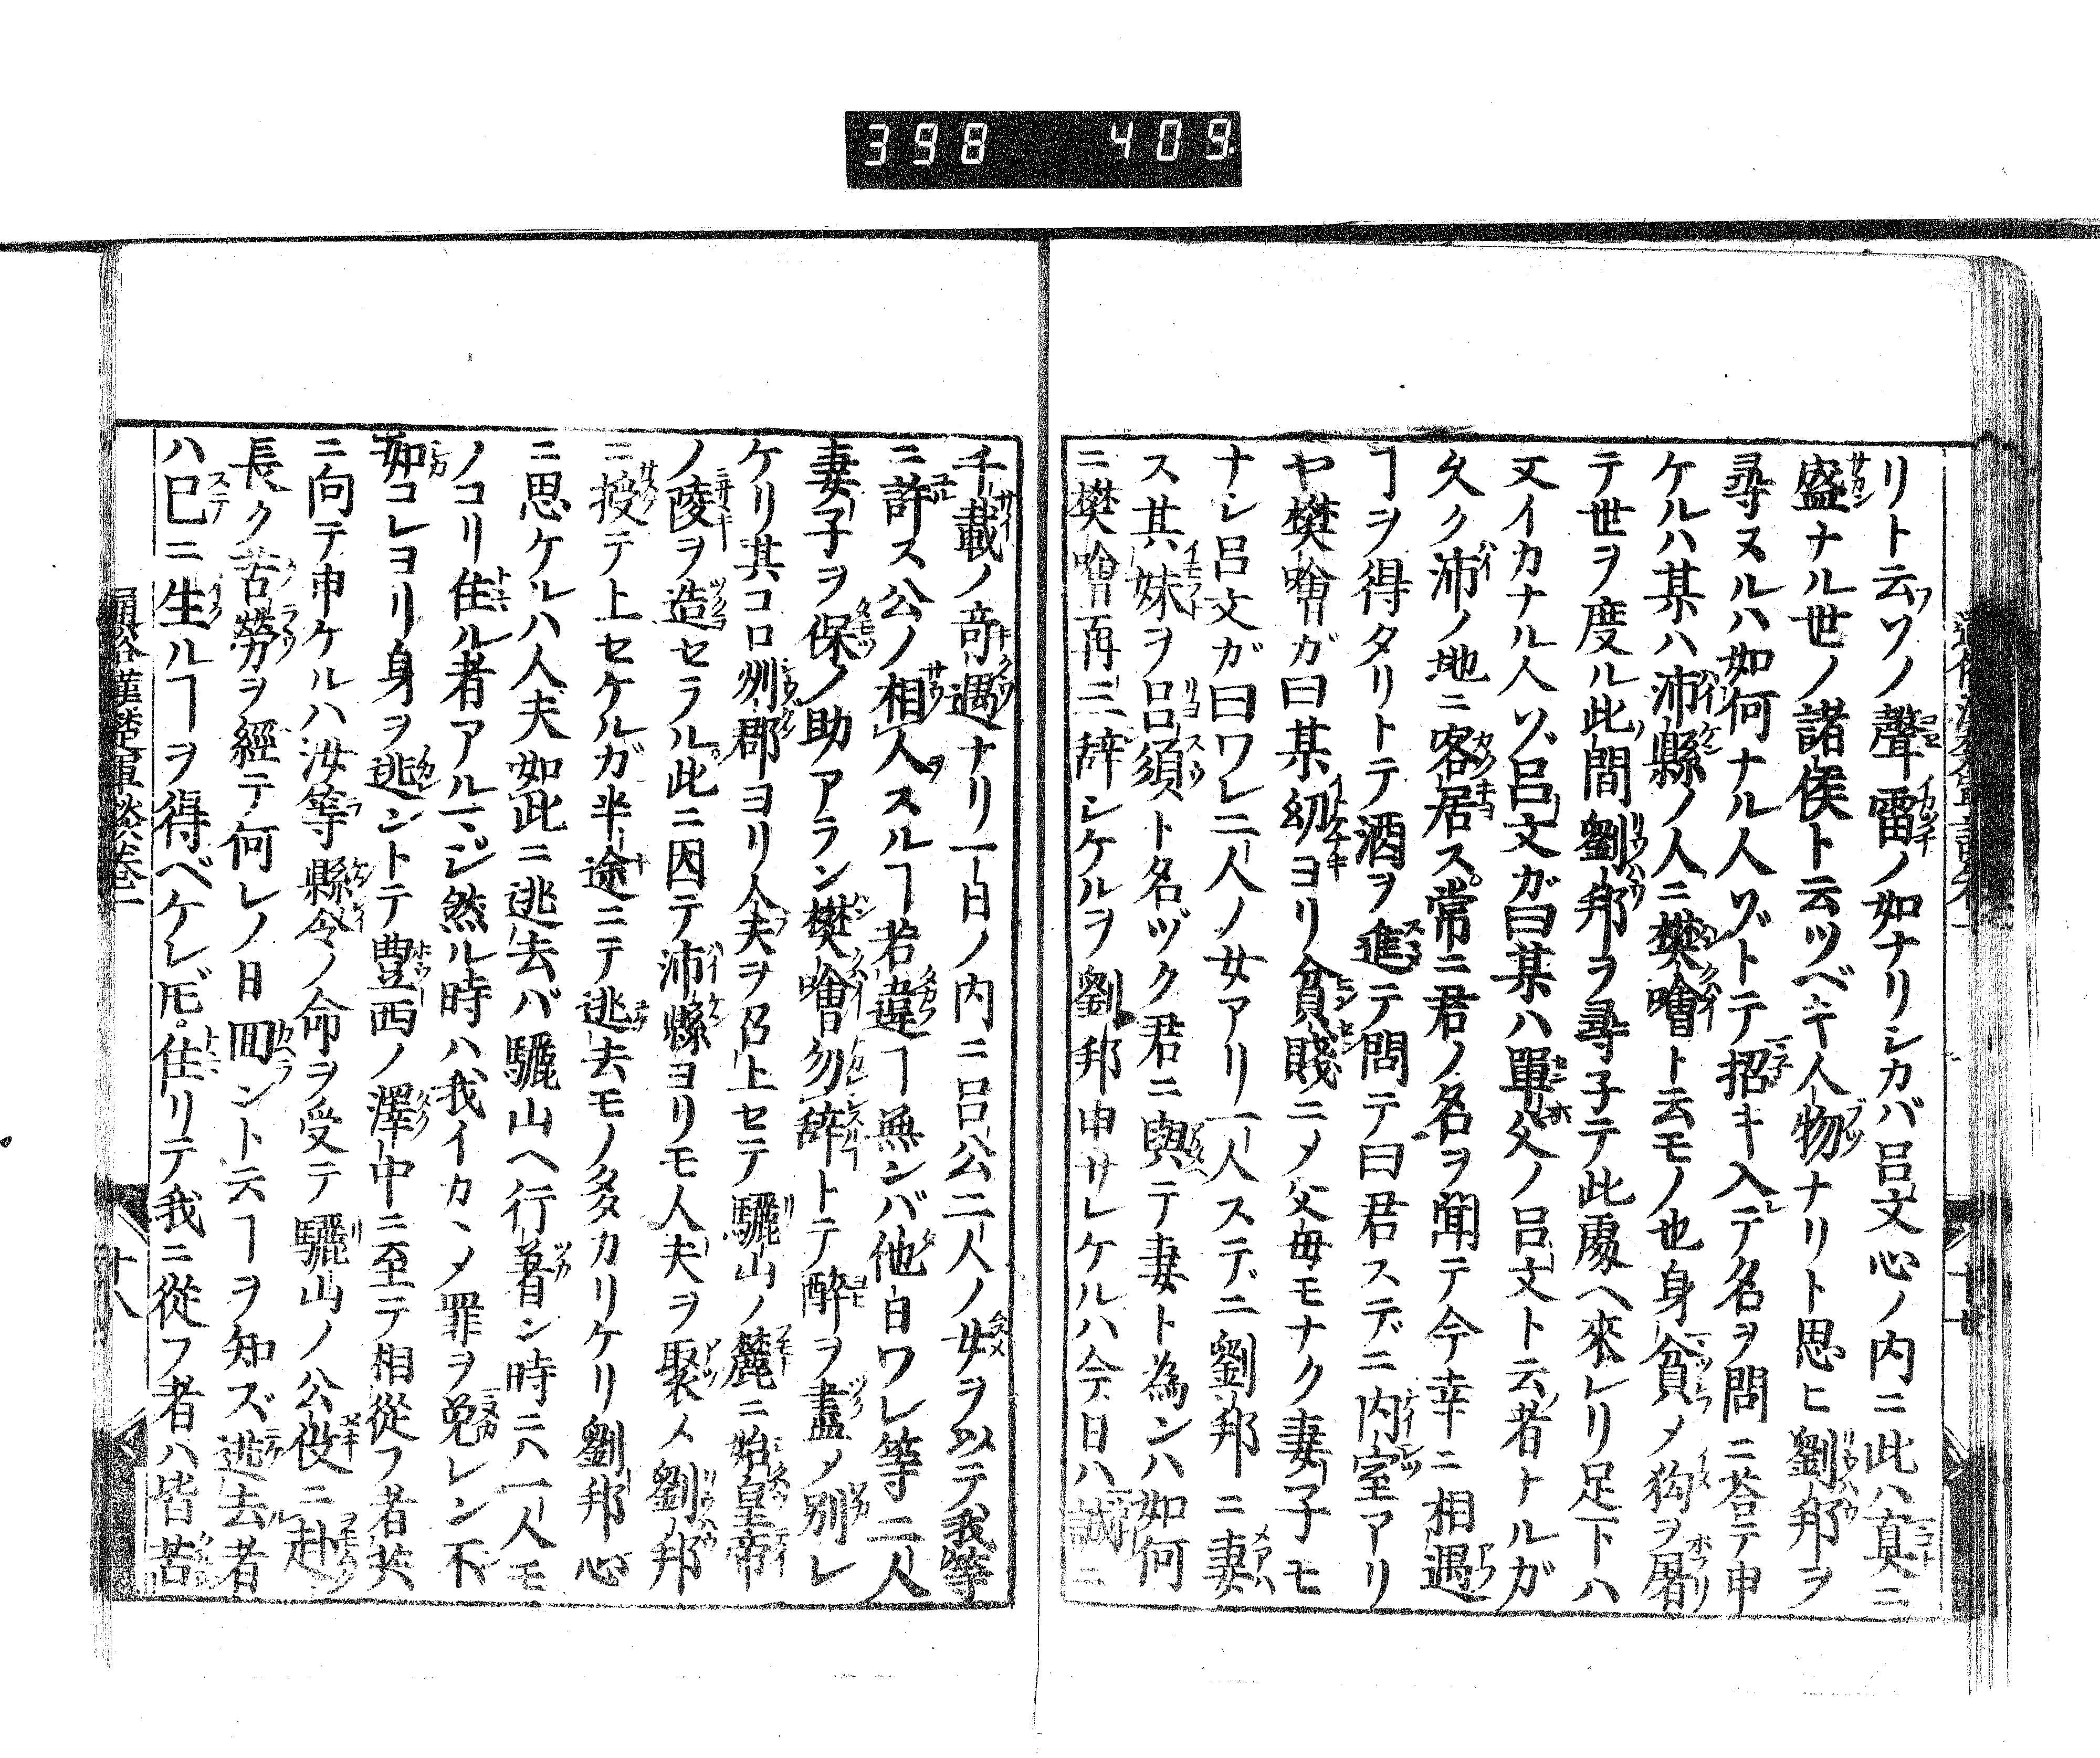 398 409
リト云ソノ聲雷ノ如ナリシカバ呂文心ノ内ニ此ハ真ニ
盛ナル世ノ諸侯ト云ツベキ人物ナリト思ヒ劉邦ヲ
尋ヌルハ如何ナル人ゾトテ招キ入テ名ヲ問ニ荅テ申
ケルハ某ハ沛縣ノ人ニ樊噲ト云モノ也身貧メ狗ヲ屠
テ世ヲ度ル此間劉邦ヲ尋子テ此處ヘ來レリ足下ハ
又イカナル人ソ呂文ガ曰某ハ單父ノ呂文ト云者ナルガ
久ク沛ノ地ニ客居ス常ニ君ノ名ヲ聞テ今幸ニ相遇
ヿヲ得タリトテ酒ヲ進テ問テ曰君スデニ内室アリ
ヤ樊噲ガ曰某幼ヨリ貧賤ニメ父母モナク妻子モ
ナシ呂文ガ曰ワレ二人ノ女アリ一人スデニ劉邦ニ妻
ス其妹ヲ呂須ト名ヅク君ニ與テ妻ト為ンハ如何
ニ樊噲再三辞シケルヲ劉邦申サレケルハ今日ハ誠ニ
千載ノ竒遇ナリ一日ノ内ニ呂公二人ノ女ヲ以テ我等
ニ許ス公ノ相人スルヿ若違ヿ無ンバ他日ワレ等二人
妻子ヲ保ノ助アラン樊噲勿辞トテ酔ヲ盡メ別レ
ケリ其コロ州郡ヨリ人夫ヲ召上セテ驪山ノ麓ニ始皇帝
ノ陵ヲ造セラル此ニ因テ沛縣ヨリモ人夫ヲ聚メ劉邦
ニ授テ上セケルガ半途ニテ逃去モノ多カリケリ劉邦心
ニ思ケルハ人夫如此ニ逃去バ驪山ヘ行着ン時ニハ一人モ
ノコリ住ル者アルマジ然ル時ハ我イカヽメ罪ヲ免レン不
如コレヨリ身ヲ逃ントテ豊西ノ澤中ニ至テ相從フ者共
ニ向テ申ケルハ汝等縣令ノ命ヲ受テ驪山ノ公役ニ赴
長ク苦勞ヲ經テ何レノ日囬ント云ヿヲ知ズ逃去者
ハ已ニ生ルヿヲ得ベケレ𪜈住リテ我ニ從フ者ハ皆苦
通俗漢楚軍談巻一
十八